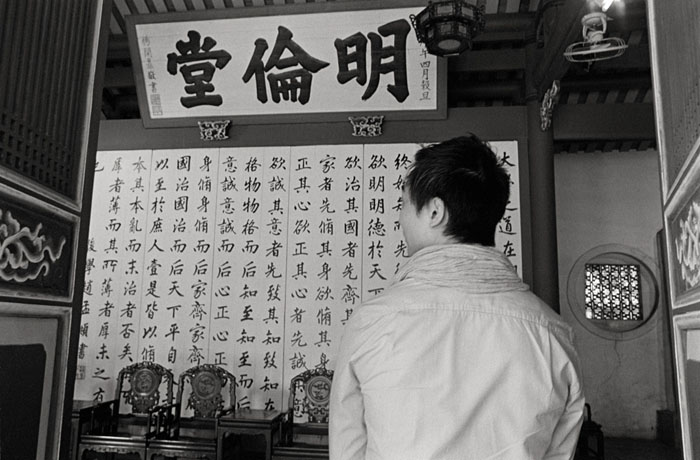 明倫堂
年四月穀旦
之道在
終始知所先
欲明明德於天下
欲治其國者先齊其
家者先脩其身欲脩其
正其心欲正其心者先誠
欲誠其意者先致其知致知在
格物物格而后知至知至而后
意誠意誠而后心正心正
身脩身脩而后家齊家齊
國治國治而后天下平自
以至於庶人壹是皆以脩
本其本亂而末治者否矣
厚者薄而其所薄者厚未之有
也